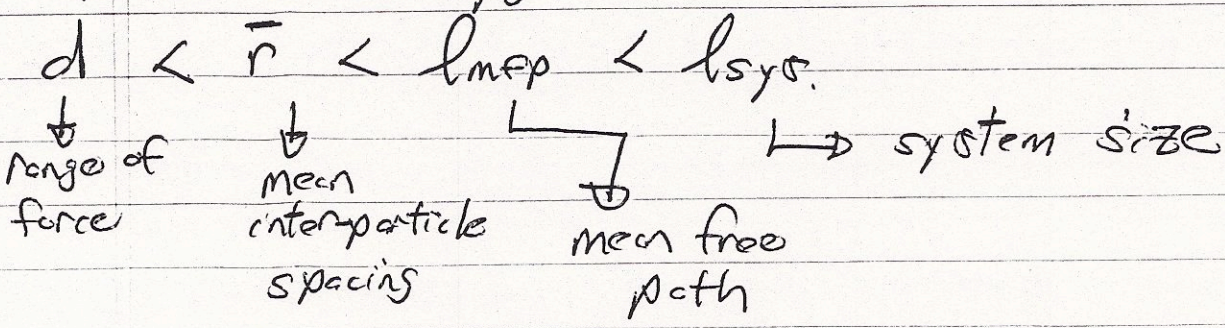 d < r̄ < lmfp < lsys.
range of force
mean inter-particle spacing
mean free path
system size